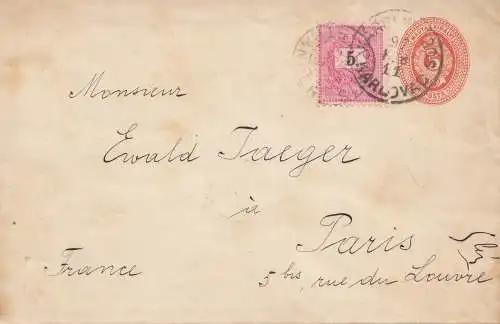 5
KARLOVAC
Monsieur
Ewald Jaeger
à
Paris
France
5 bis, rue du Louvre